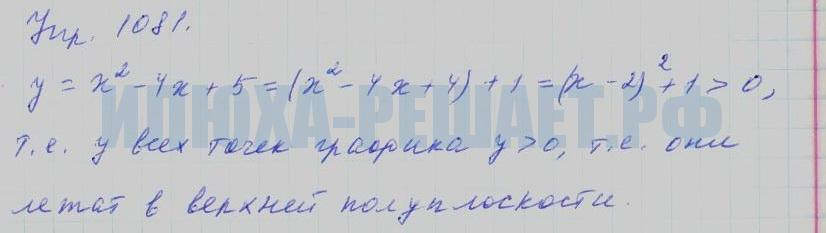 Упр. 1081.
y = x² - 4x + 5 = (x² - 4x + 4) + 1 = (x - 2)² + 1 > 0,
т.е. у всех точек графика y > 0, т.е. они
лежат в верхней полуплоскости.
ИЛЮХА-РЕШАЕТ.РФ